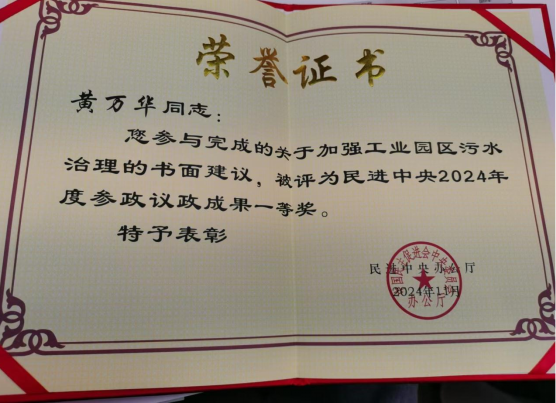 荣誉证书
黄万华同志：
您参与完成的关于加强工业园区污水
治理的书面建议，被评为民进中央2024年
度参政议政成果一等奖。
特予表彰
民进中央办公厅
2024年11月
办公厅